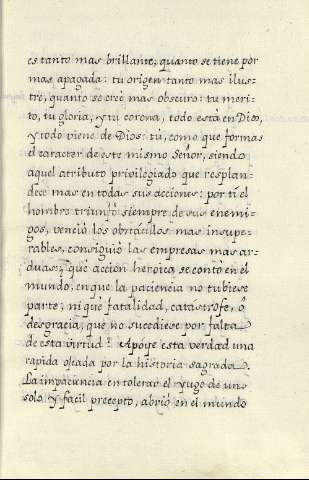 es tanto mas brillante, quanto se tiene por
mas apagada: tu origen tanto mas ilus-
tre, quanto se creé mas obscuro: tu meri-
to, tu gloria, y tu corona, todo está en Dios,
y todo viene de Dios: tú, como que formas
el caracter de este mismo Señor, siendo
aquel atributo privilegiado que resplan-
dece mas en todas sus acciones: por ti el
hombre triunfó siempre de sus enemi-
gos, venció los obstaculos mas insupe-
rables, consiguió las empresas mas ar-
duas; ¿qué acción heroica se contó en el
mundo, en que la paciencia no tubiese
parte; ni que fatalidad, catastrofe, ó
desgracia, que no sucediese por falta
de esta virtud? Apoye esta verdad una
rapida oleada por la historia sagrada.
La impaciencia en tolerar el yugo de un
solo y facil precepto, abrió en el mundo